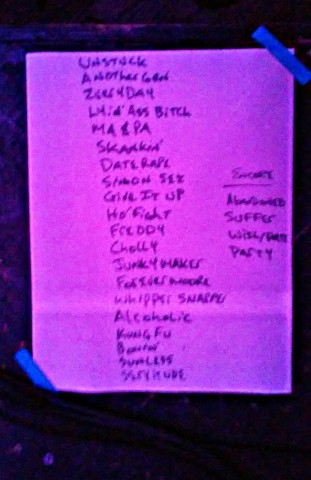 UNSTUCK
ANOTHER GEN
EVERYDAY
LYIN' ASS BITCH
MA & PA
SKANKIN'
DATE RAPE
SIMON SEZ
GIVE IT UP
HO FIGHT
FREDDY
CHOLLY
JUNKYMAKER
FOREVERMOORE
WHIPPER SNAPPER
ALCOHOLIC
KUNG FU
BOUNCIN'
SUNLESS
SERVITUDE
ENCORE
ABANDONED
SUFFER
PARTY